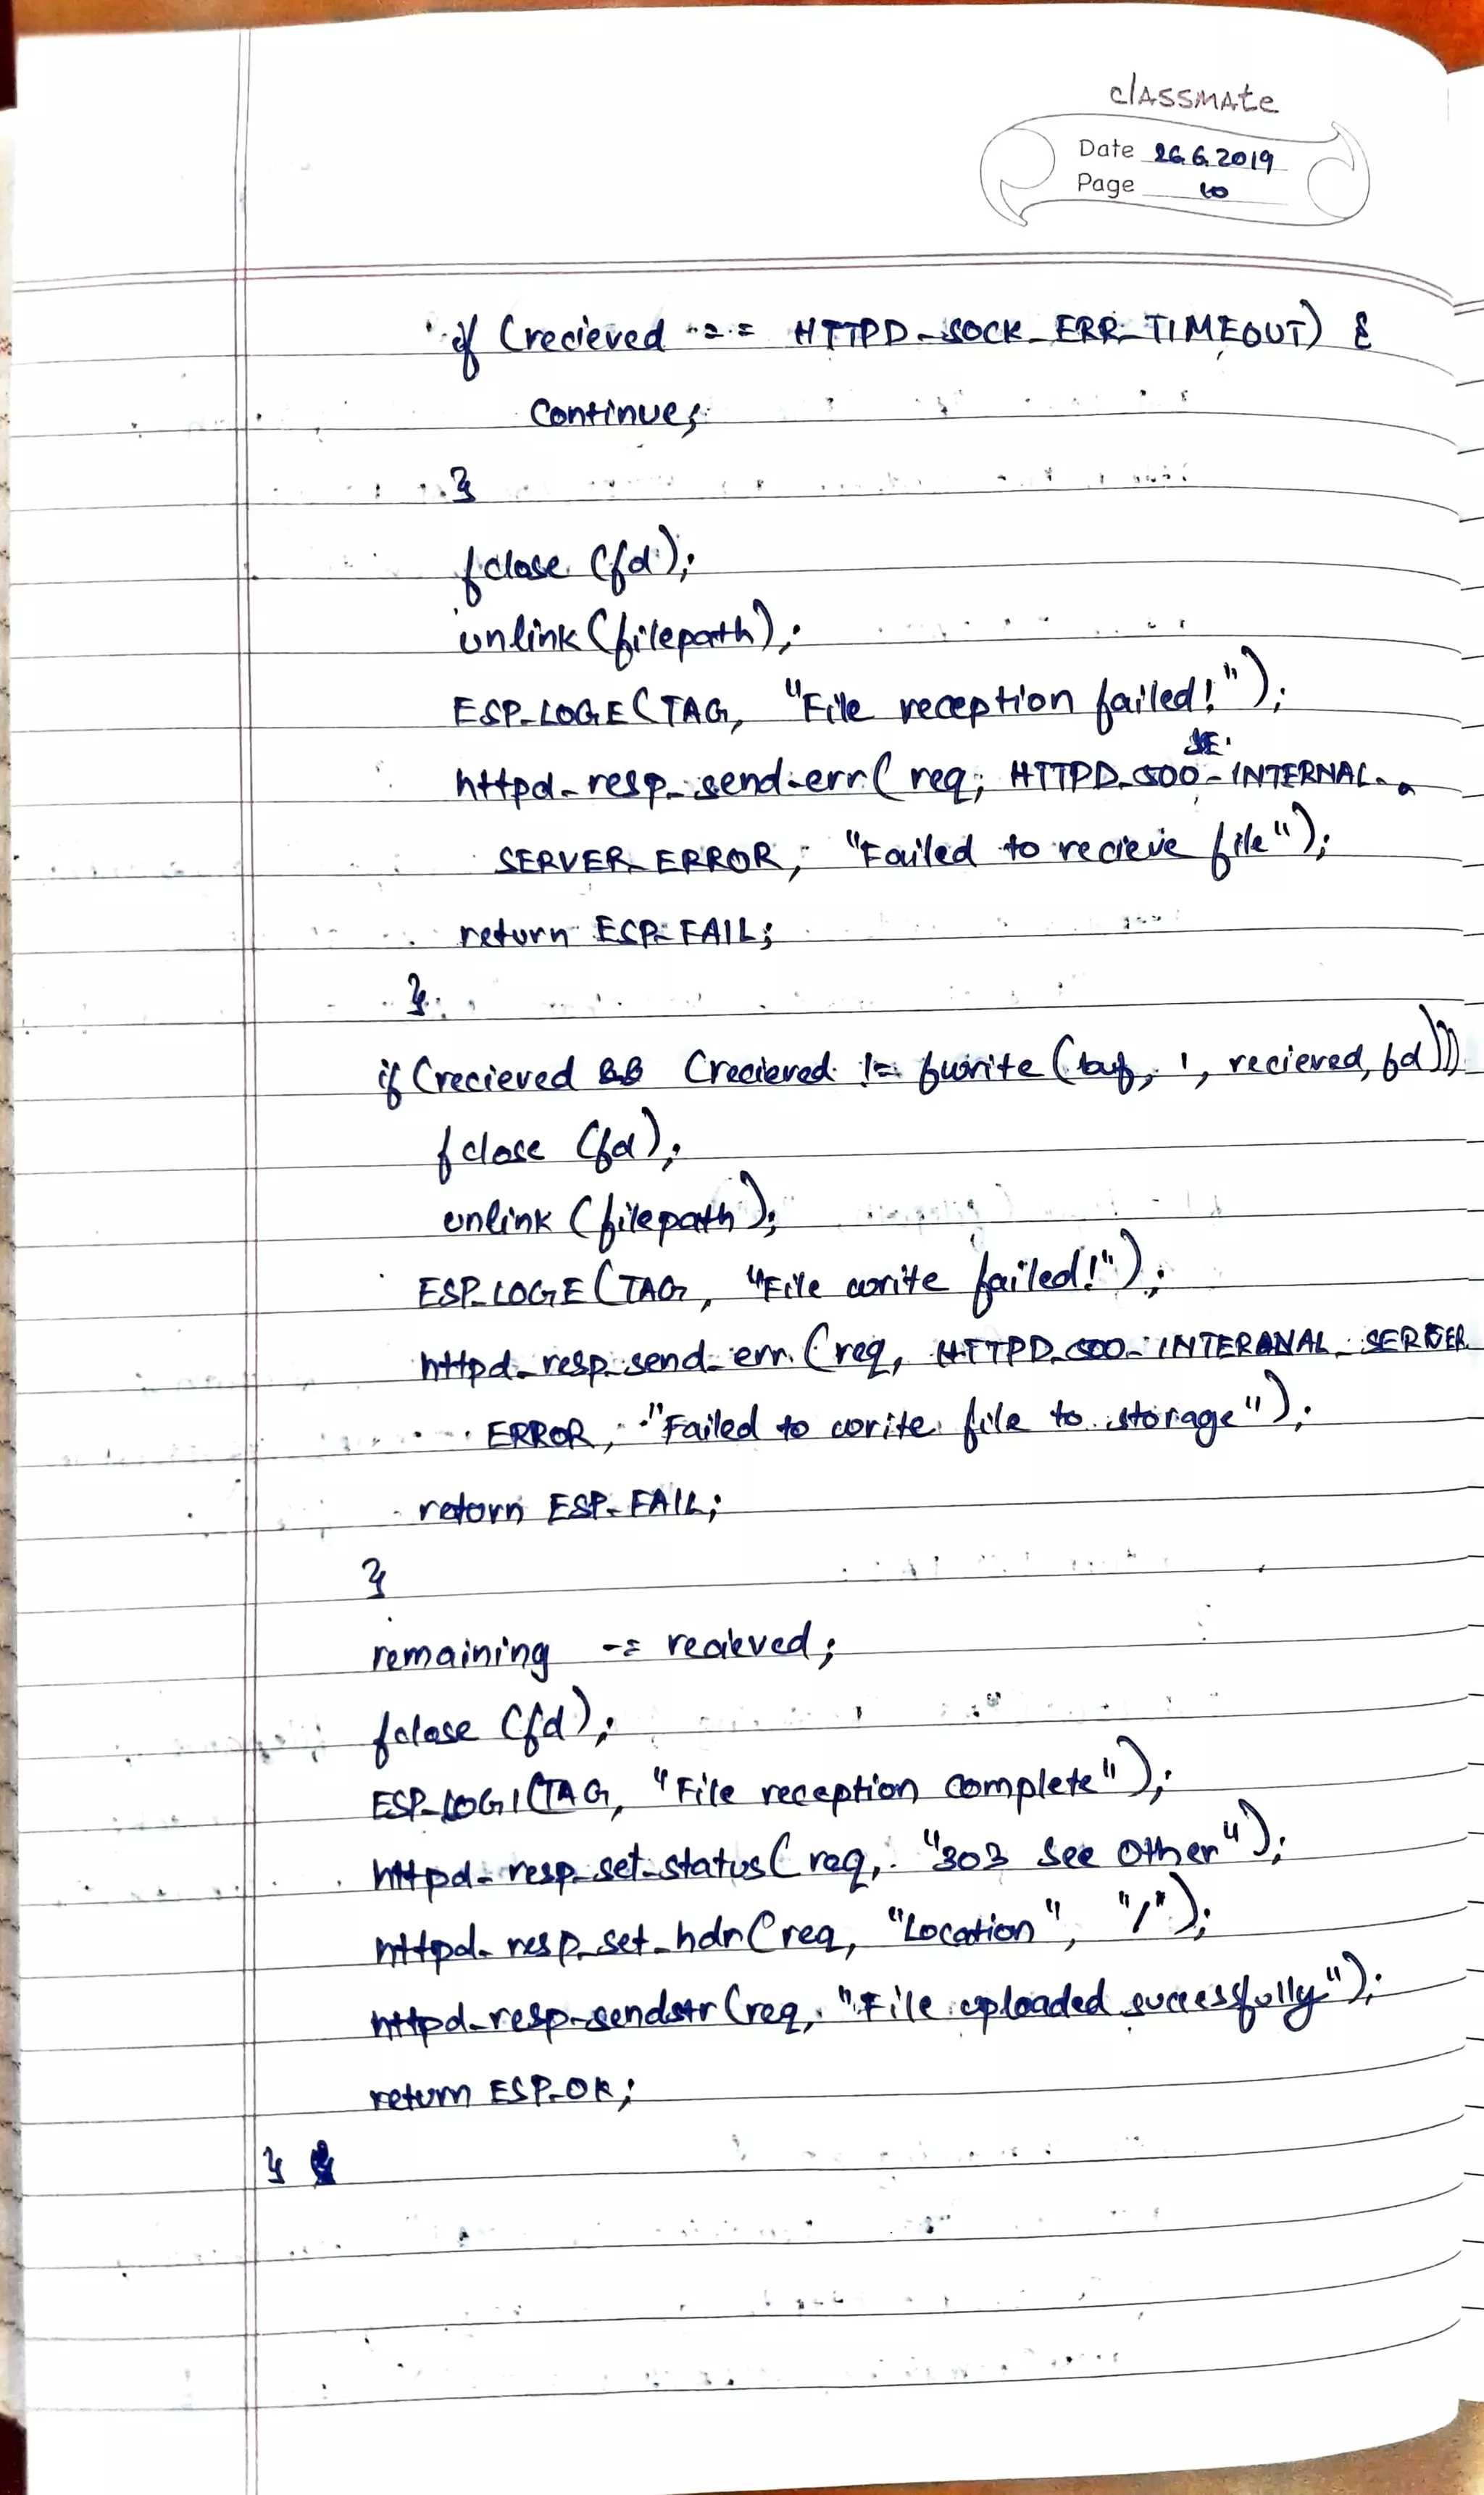 classmate
Date 26.6.2019
Page 10
if (recieved == HTTPD_SOCK_ERR_TIMEOUT) {
continue;
}
fclose (fd);
unlink (filepath);
ESP_LOGE (TAG, "File reception failed!");
httpd_resp_send_err( req, HTTPD_500_INTERNAL_
SERVER_ERROR, "Failed to recieve file");
return ESP_FAIL;
}
if (recieved && (recieved != fwrite (buf, 1, recieved, fd)))
fclose (fd);
unlink (filepath);
ESP_LOGE (TAG, "File write failed!");
httpd_resp_send_err (req, HTTPD_500_INTERANAL_SERVER
ERROR, "Failed to write file to storage");
return ESP_FAIL;
}
remaining -= recieved;
fclose (fd);
ESP_LOGI (TAG, "File reception complete");
httpd_resp_set_status( req, "303 See Other");
httpd_resp_set_hdr (req, "Location", "/");
httpd_resp_sendstr (req, "File uploaded successfully");
return ESP_OK;
}